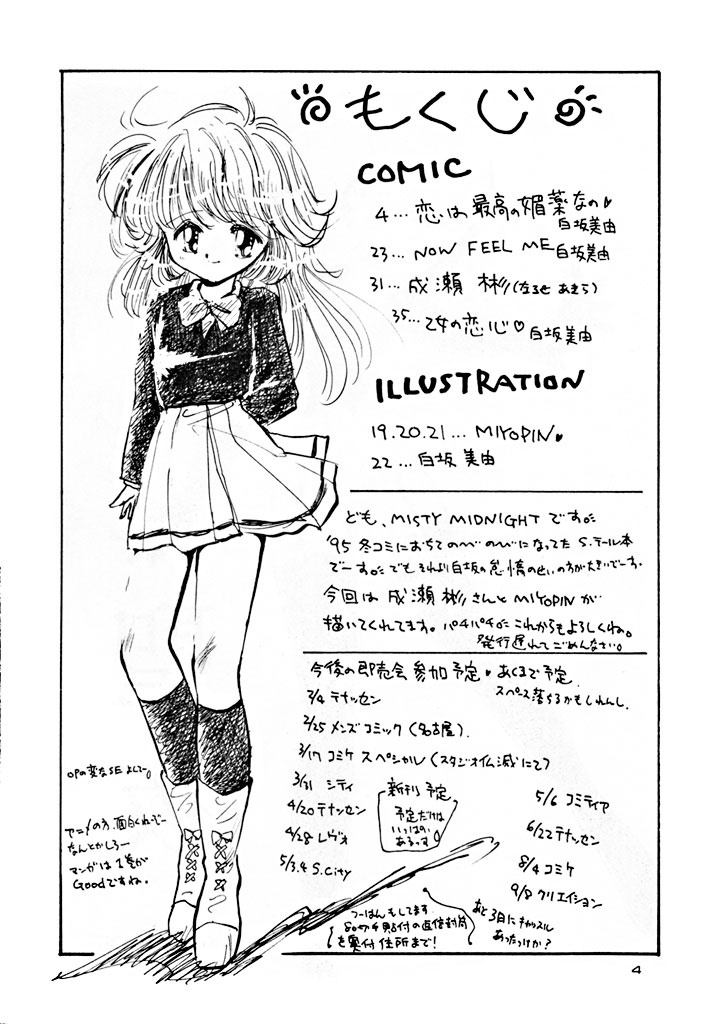 もくじ
COMIC
4… 恋は最高の媚薬なの♥
白坂美由
23… NOW FEEL ME 白坂美由
31… 成瀬 彬(なるせ あきら)
35… 乙女の恋心♡ 白坂美由
ILLUSTRATION
19.20.21… MIYOPIN♥
22… 白坂 美由
ども、MISTY MIDNIGHT です。
'95 冬コミにおちてのべのべになってた S.テール本
でーす。でもそれより白坂の怠惰のせいの方が大きいでーす。
今回は 成瀬彬さんと MIYOPINが
描いてくれてます。パチパチ。これからもよろしくね。
発行遅れてごめんなさい。
今後の即売会 参加予定♥ あくまで予定
スペース落ちるかもしれんし.
2/4 テナッセン
2/25 メンズコミック(名古屋)
3/17 コミケ スペシャル(スタジオイム滅にて)
3/31 シティ
4/20 テナッセン
4/28 レヴォ
5/3.4 S.City
新刊 予定
予定だけは
いっぱい
あるっす
5/6 コミティア
6/22 テナッセン
8/4 コミケ
9/8 クリエイション
OPの変なSE よしてー。
アニメの方、面白くねーぞー
なんとかしろー
マンガは1巻が
Goodですね。
つーはんもしてます
80切手貼付の返信封筒
を奥付 住所まで!
あと3日に キャッスル
あったっけか?
4